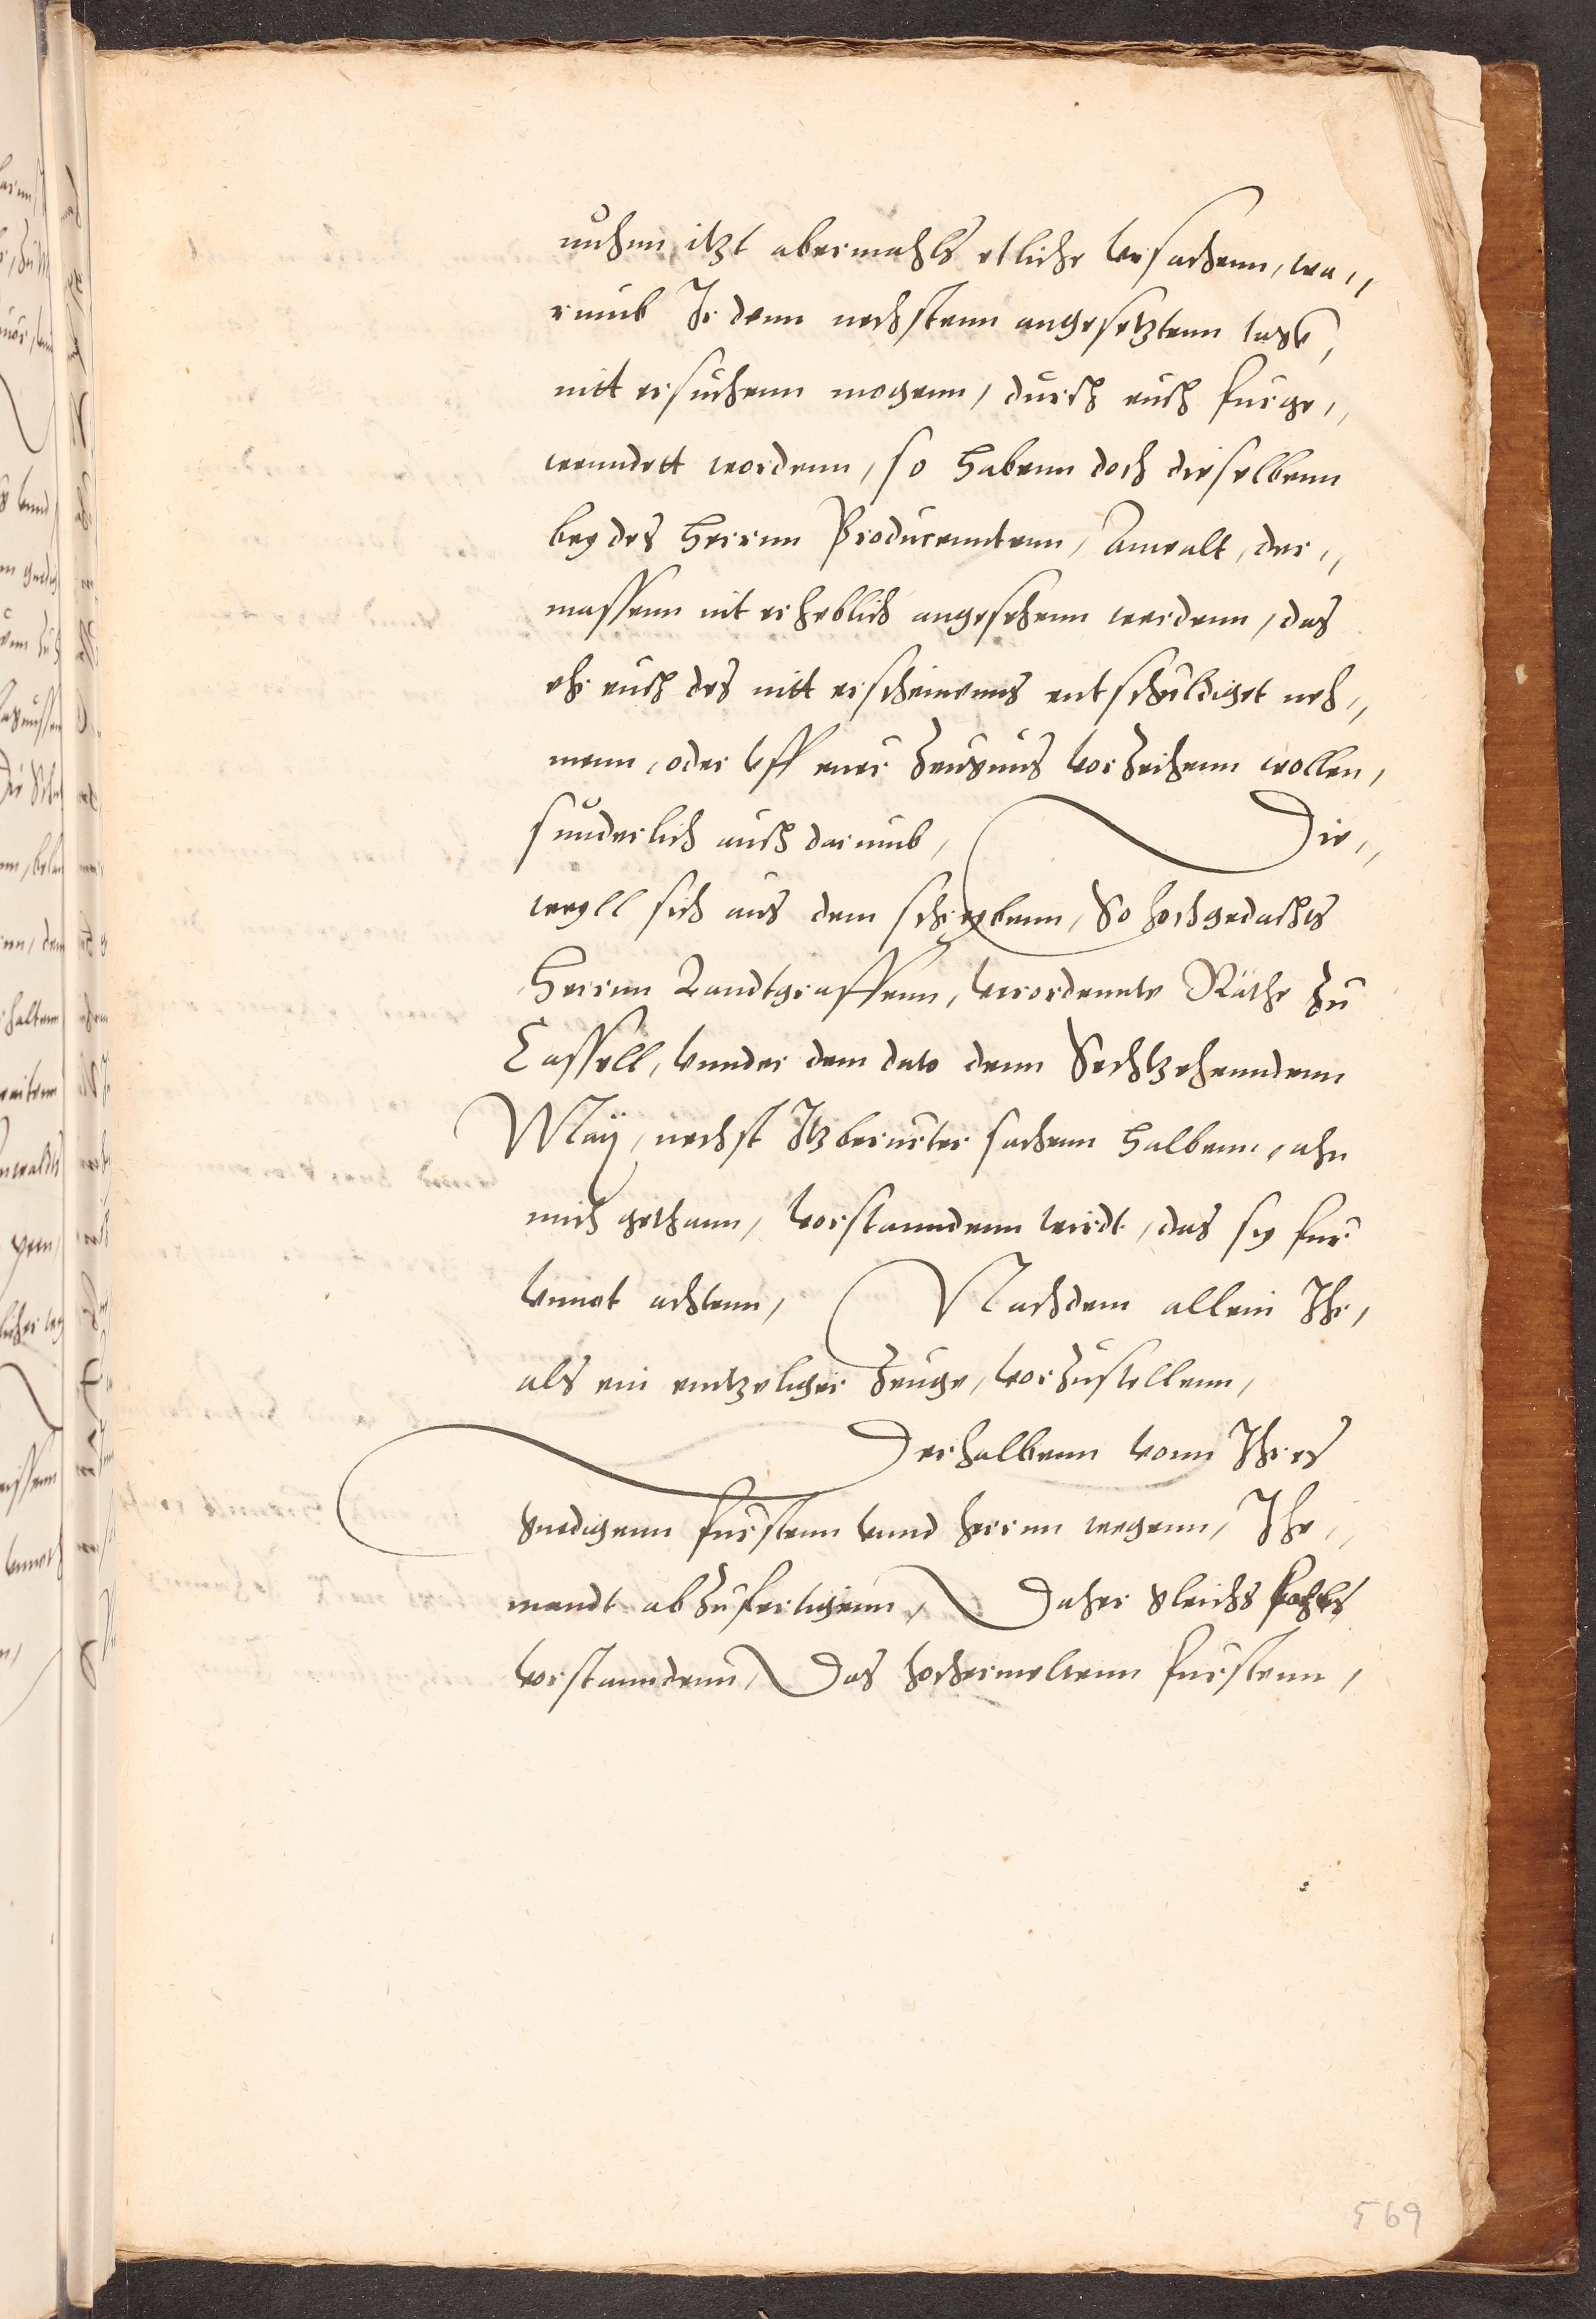 nuhnn itzt abermahls etliche vrsachenn, wa-,,
rumb Ir denn nechstenn angesetztenn tagk,
nitt ersuchenn mogenn, durch euch furge,,
wenndett wordenn, so habenn doch dieselbenn
bey des herrnn Producenntenn, Anwalt, der,,
massenn nit erheblich angesehenn werdenn, das
ehr euch des nitt erscheinenns entschuldiget neh,,
menn, oder vff euer Zeugnus vorzeihenn wollen,
sunderlich auch darumb, Die,,
weyll sich aus dem schreybenn, So hochgedachts
Herrnn Landtgraffenn, verordennte Räthe zu
Cassell, vnnder dem dato denn Sechtzehenndenn
May, nechst Itzberurter sachenn halbenn, ahn
mich gethann, vorstanndenn wirdt, das sy fur
vnnot achtenn, Nachdem allein Ihr,
als ein eintzeliger Zeuge, vorzustellenn,
Derhalbenn vonn Ihres
gnedigenn furstenn vnnd herrnn wegenn, Ihe,,
mandt abzufertigenn, Daher gleichs
vorstanndenn, Das hochermeltenn furstenn,
569